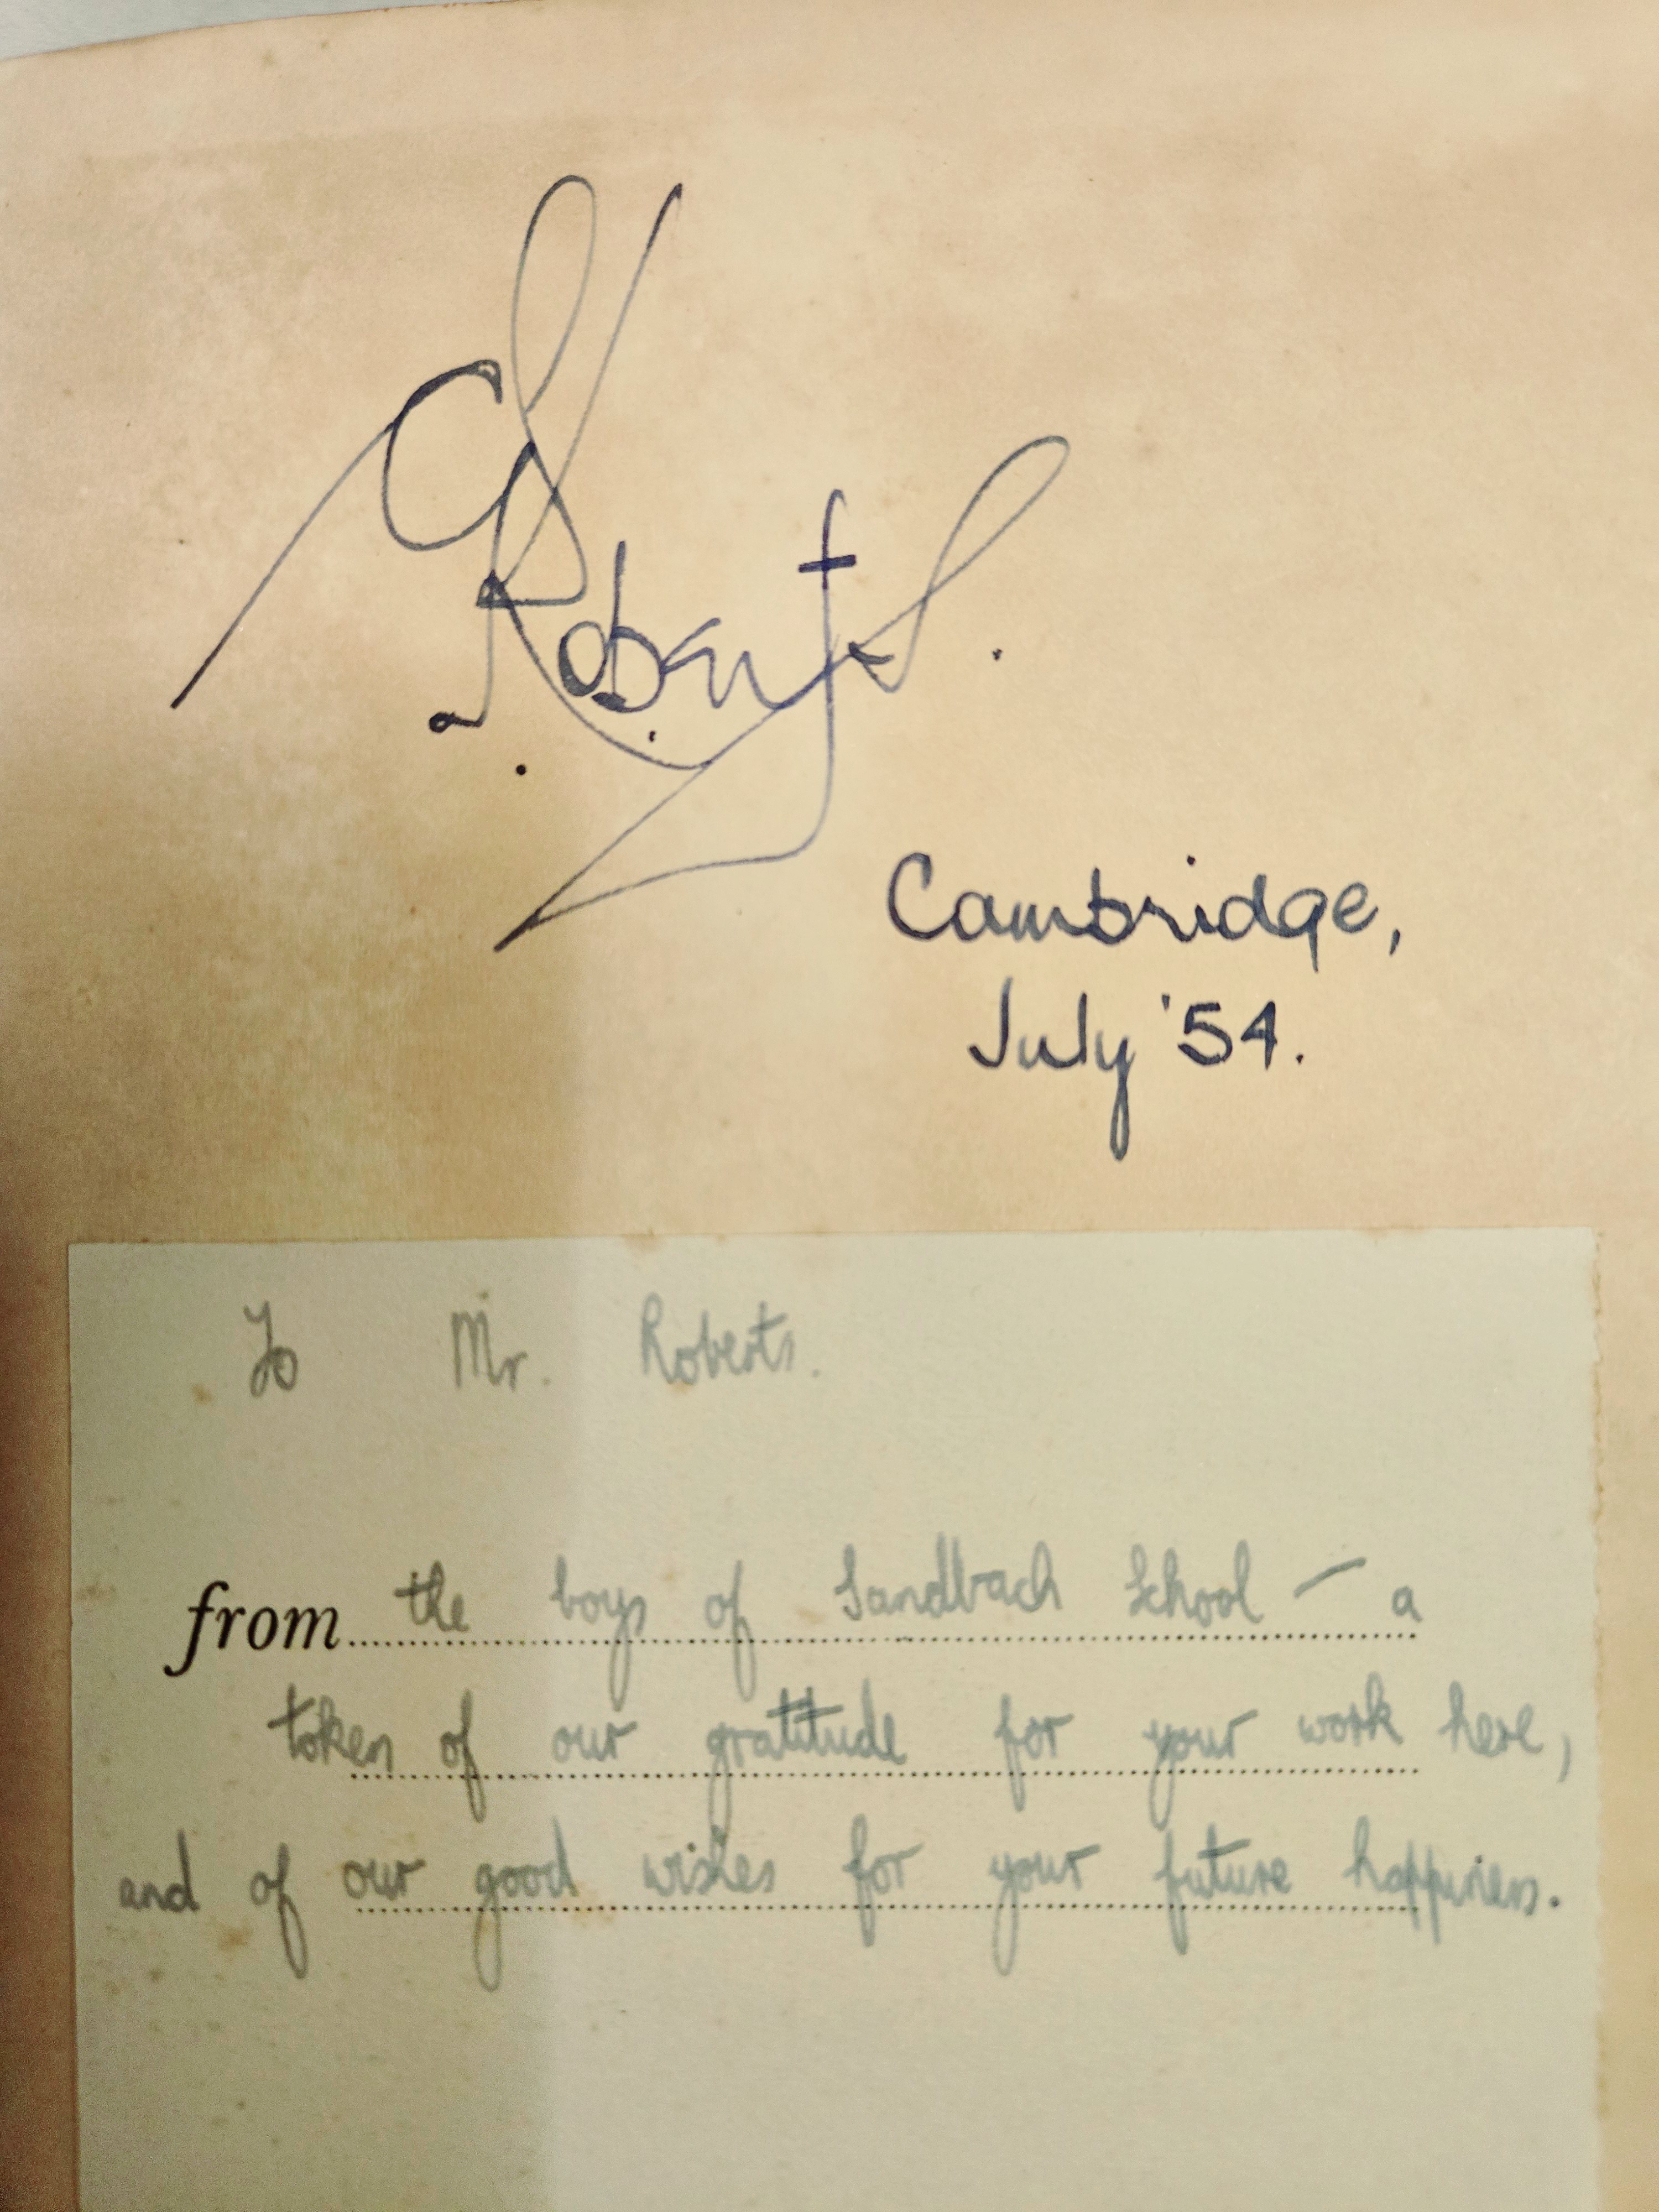 Roberts.
Cambridge,
July '54.
To Mr. Roberts.
from the boys of Sandbach School — a
token of our gratitude for your work here,
and of our good wishes for your future happiness.